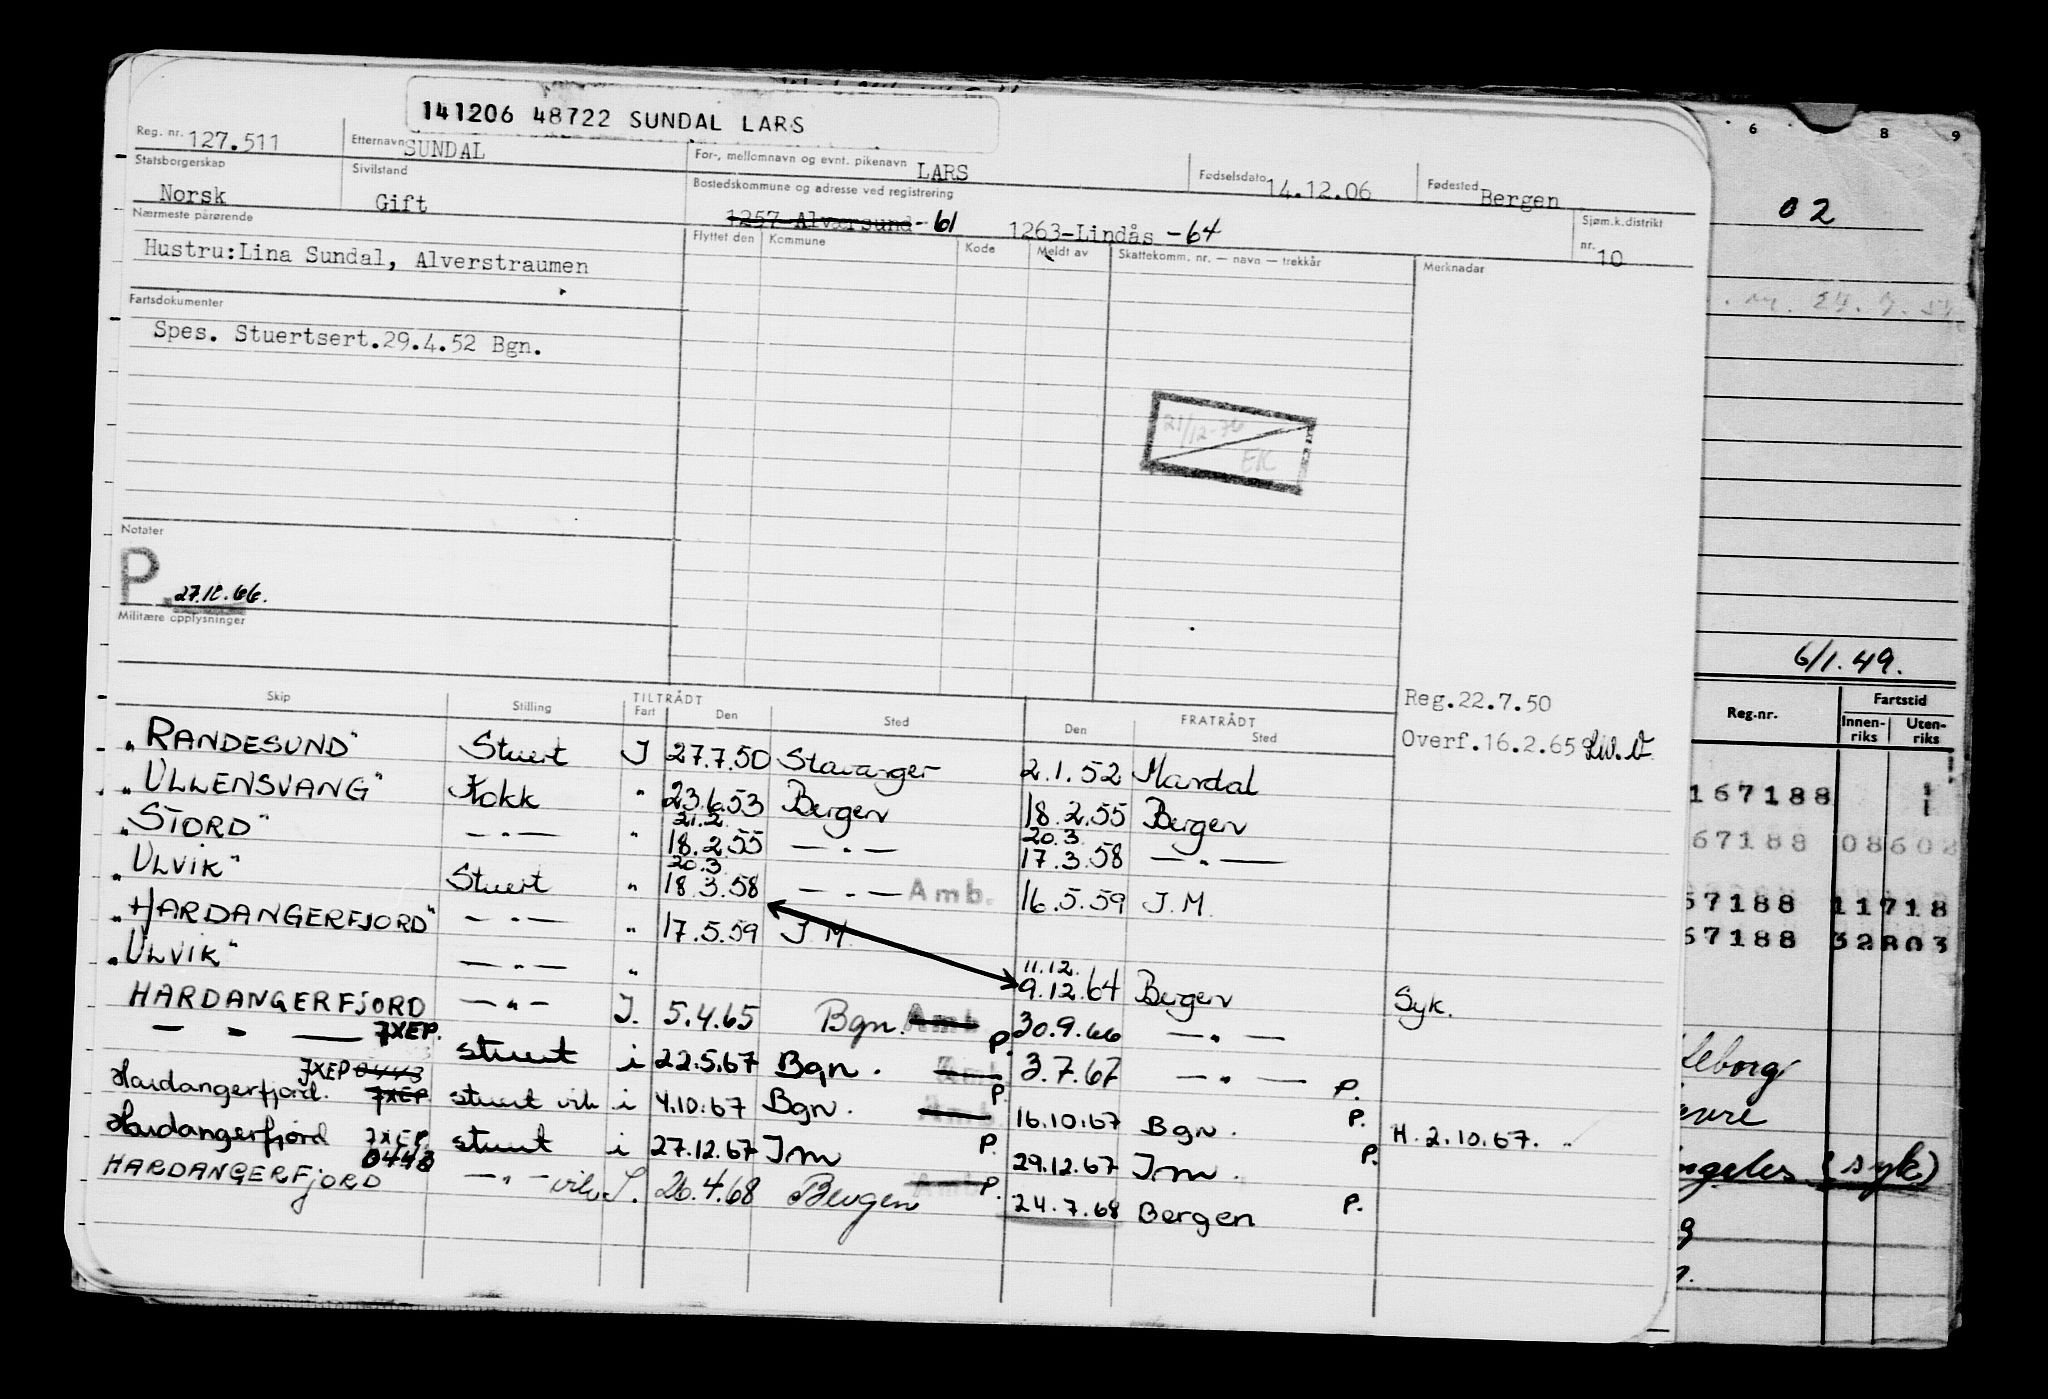 141206 48722 SUNDAL LARS
Reg. nr. 127.511 Etternavn SUNDAL For-, mellomnavn og evnt. pikenavn LARS Fødselsdato 14.12.06 Fødested Bergen
Statsborgerskap Norsk Sivilstand Gift Bostedskommune og adresse ved registrering 1257-Alværsund -61 1263-Lindås -64 Sjøm.k.distrikt nr. 10
Nærmeste pårørende
Hustru:Lina Sundal, Alverstraumen
Flyttet den Kommune Kode Meldt av Skattekomm. nr. — navn — trekkår Merknadar
Fartsdokumenter
Spes. Stuertsert.29.4.52 Bgn.
21/12-76
EK
Notater
P. 27.12.66.
Militære opplysninger
Reg.22.7.50
Overf.16.2.65
Skip Stilling TILTRÅDT Fart Den Sted FRATRÅDT Den Sted
"RANDESUND" Stuert I 27.7.50 Stavanger 2.1.52 Mandal
"ULLENSVANG" Kokk " 23.6.53 Bergen 18.2.55 Bergen
21.2. 20.3.
"STORD" — " — " 18.2.55 — " — 17.3.58 — " —
20.3.
"ULVIK" Stuert " 18.3.58 — " — Amb. 16.5.59 I.M.
"HARDANGERFJORD" — " — " 17.5.59 I.M.
11.12.
"ULVIK" — " — " 9.12.64 Bergen Syk.
HARDANGERFJORD — " — I. 5.4.65 Bgn. Amb. P. 30.9.66 — " —
— " — JXEP. stuert i 22.5.67 Bgn. Amb. P. 3.7.67 — " — P.
JXEP 0443
Hardangerfjord. JXEP stuert vik i 4.10.67 Bgn. Amb. 16.10.67 Bgn. P. H. 2.10.67.
Hardangerfjord JXEP. stuert i 27.12.67 Im P. 29.12.67 Im. P.
0443
HARDANGERFJORD — " — vik I. 26.4.68 Bergen Amb. P. 24.7.68 Bergen P.
6 8 9
02
6/1.49.
Reg-nr. Fartstid
Innenriks Utenriks
167188
67188 08602
67188 11718
67188 32803
(syk)